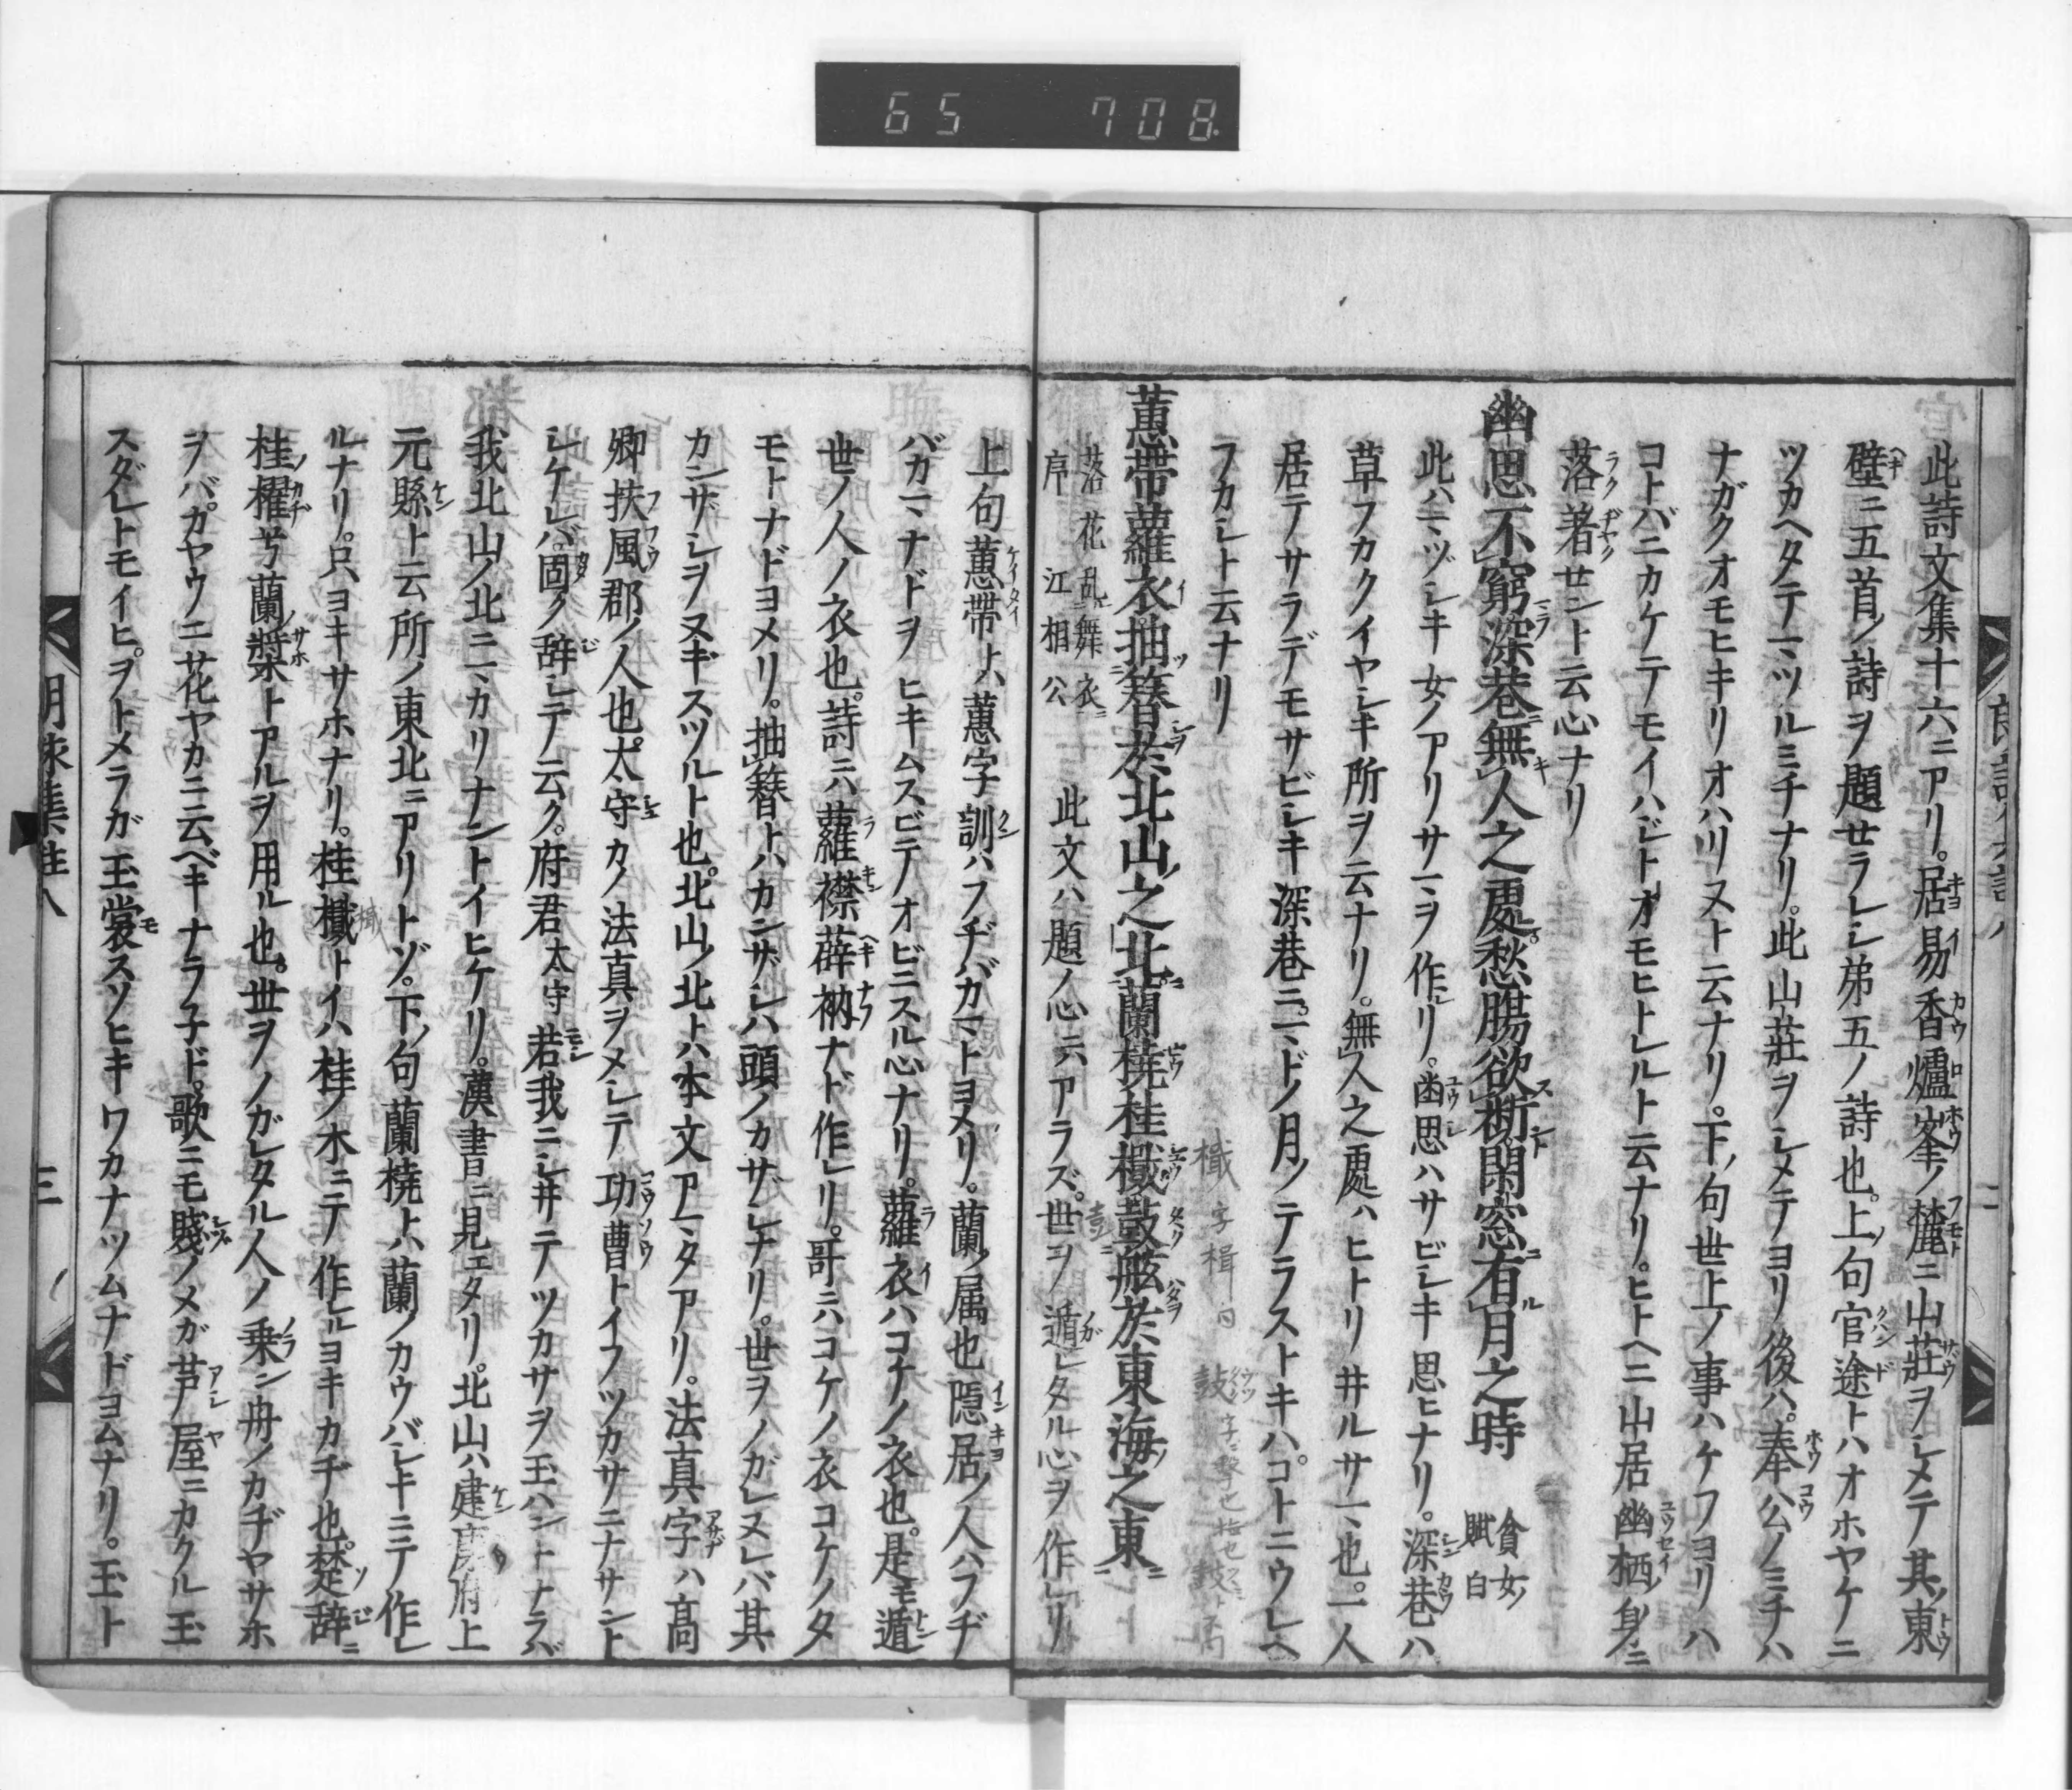 65 708
此詩文集十六ニアリ。居易香爐峯ノ麓ニ山莊ヲシメテ其ノ東
壁ニ五首ノ詩ヲ題セラレシ弟五ノ詩也。上ノ句官途トハオホヤケニ
ツカヘタテマツルミチナリ。此山莊ヲシメテヨリノ後ハ。奉公ノミチハ
ナガクオモヒキリオハリヌト云ナリ。下ノ句世上ノ事ハケフヨリハ
コトバニカケテモイハジトオモヒトレルト云ナリ。ヒトヘニ山居幽栖ノ身ニ
落著セント云心ナリ
幽思不窮深巷無人之處愁腸欲斷閑窓有月之時 貧女賦 白
此ハマヅシキ女ノアリサマヲ作レリ。幽思ハサビシキ思ヒナリ。深巷ハ
草フカクイヤシキ所ヲ云ナリ。無人之處ハヒトリ井ルサマ也。一人
居テサラデモサビシキ深巷ニ。マドノ月ノテラストキハ。コトニウレヘ
フカシト云ナリ
蕙帶蘿衣抽簪於北山之北蘭橈桂檝鼓舷於東海之東
落花乱舞衣序 江相公 此文ハ題ノ心ニアラズ。世ヲノ遁レタル心ヲ作レリ
上句蕙帶トハ蕙字訓ハフヂバカマトヨメリ。蘭ノ属也隠居ノ人ハフヂ
バカマナドヲヒキムスビテオビニスル心ナリ。蘿衣ハコケノ衣也。是モ遁
世ノ人ノ衣也。詩ニハ蘿襟薜衲ナド作レリ。哥ニハコケノ衣コケノタ
モトナドヨメリ。抽簪トハカンザシハ頭ノカザシナリ。世ヲノガレヌレバ其
カンザシヲヌギスツルト也。北山ノ北トハ本文アマタアリ。法真字ハ高
卿扶風郡ノ人也。太守カノ法真ヲメシテ功曹トイフツカサニナサント
シケレバ。固ク辞シテ云ク。府君太守若我ニシ井テツカサヲ玉ハントナラバ
我北山ノ北ニマカリナントイヒケリ。漢書ニ見エタリ。北山ハ建康府上
元縣ト云所ノ東北ニアリトゾ。下ノ句蘭橈トハ蘭ノカウバシキニテ作レ
ルナリ。只ヨキサホナリ。桂檝トイハ桂ノ木ニテ作レルヨキカヂ也。楚辞ニ
桂ノ櫂兮蘭ノ槳トアルヲ用ル也。世ヲノガレタル人ノ乗ラン舟ノカヂヤサホ
ヲバ。カヤウニ花ヤカニ云ベキナラ子ド。歌ニモ賤ノメガ芦ノ屋ニカクル玉
スダレトモイヒ。ヲトメラガ玉裳スソヒキワカナツムナドヨムナリ。玉ト